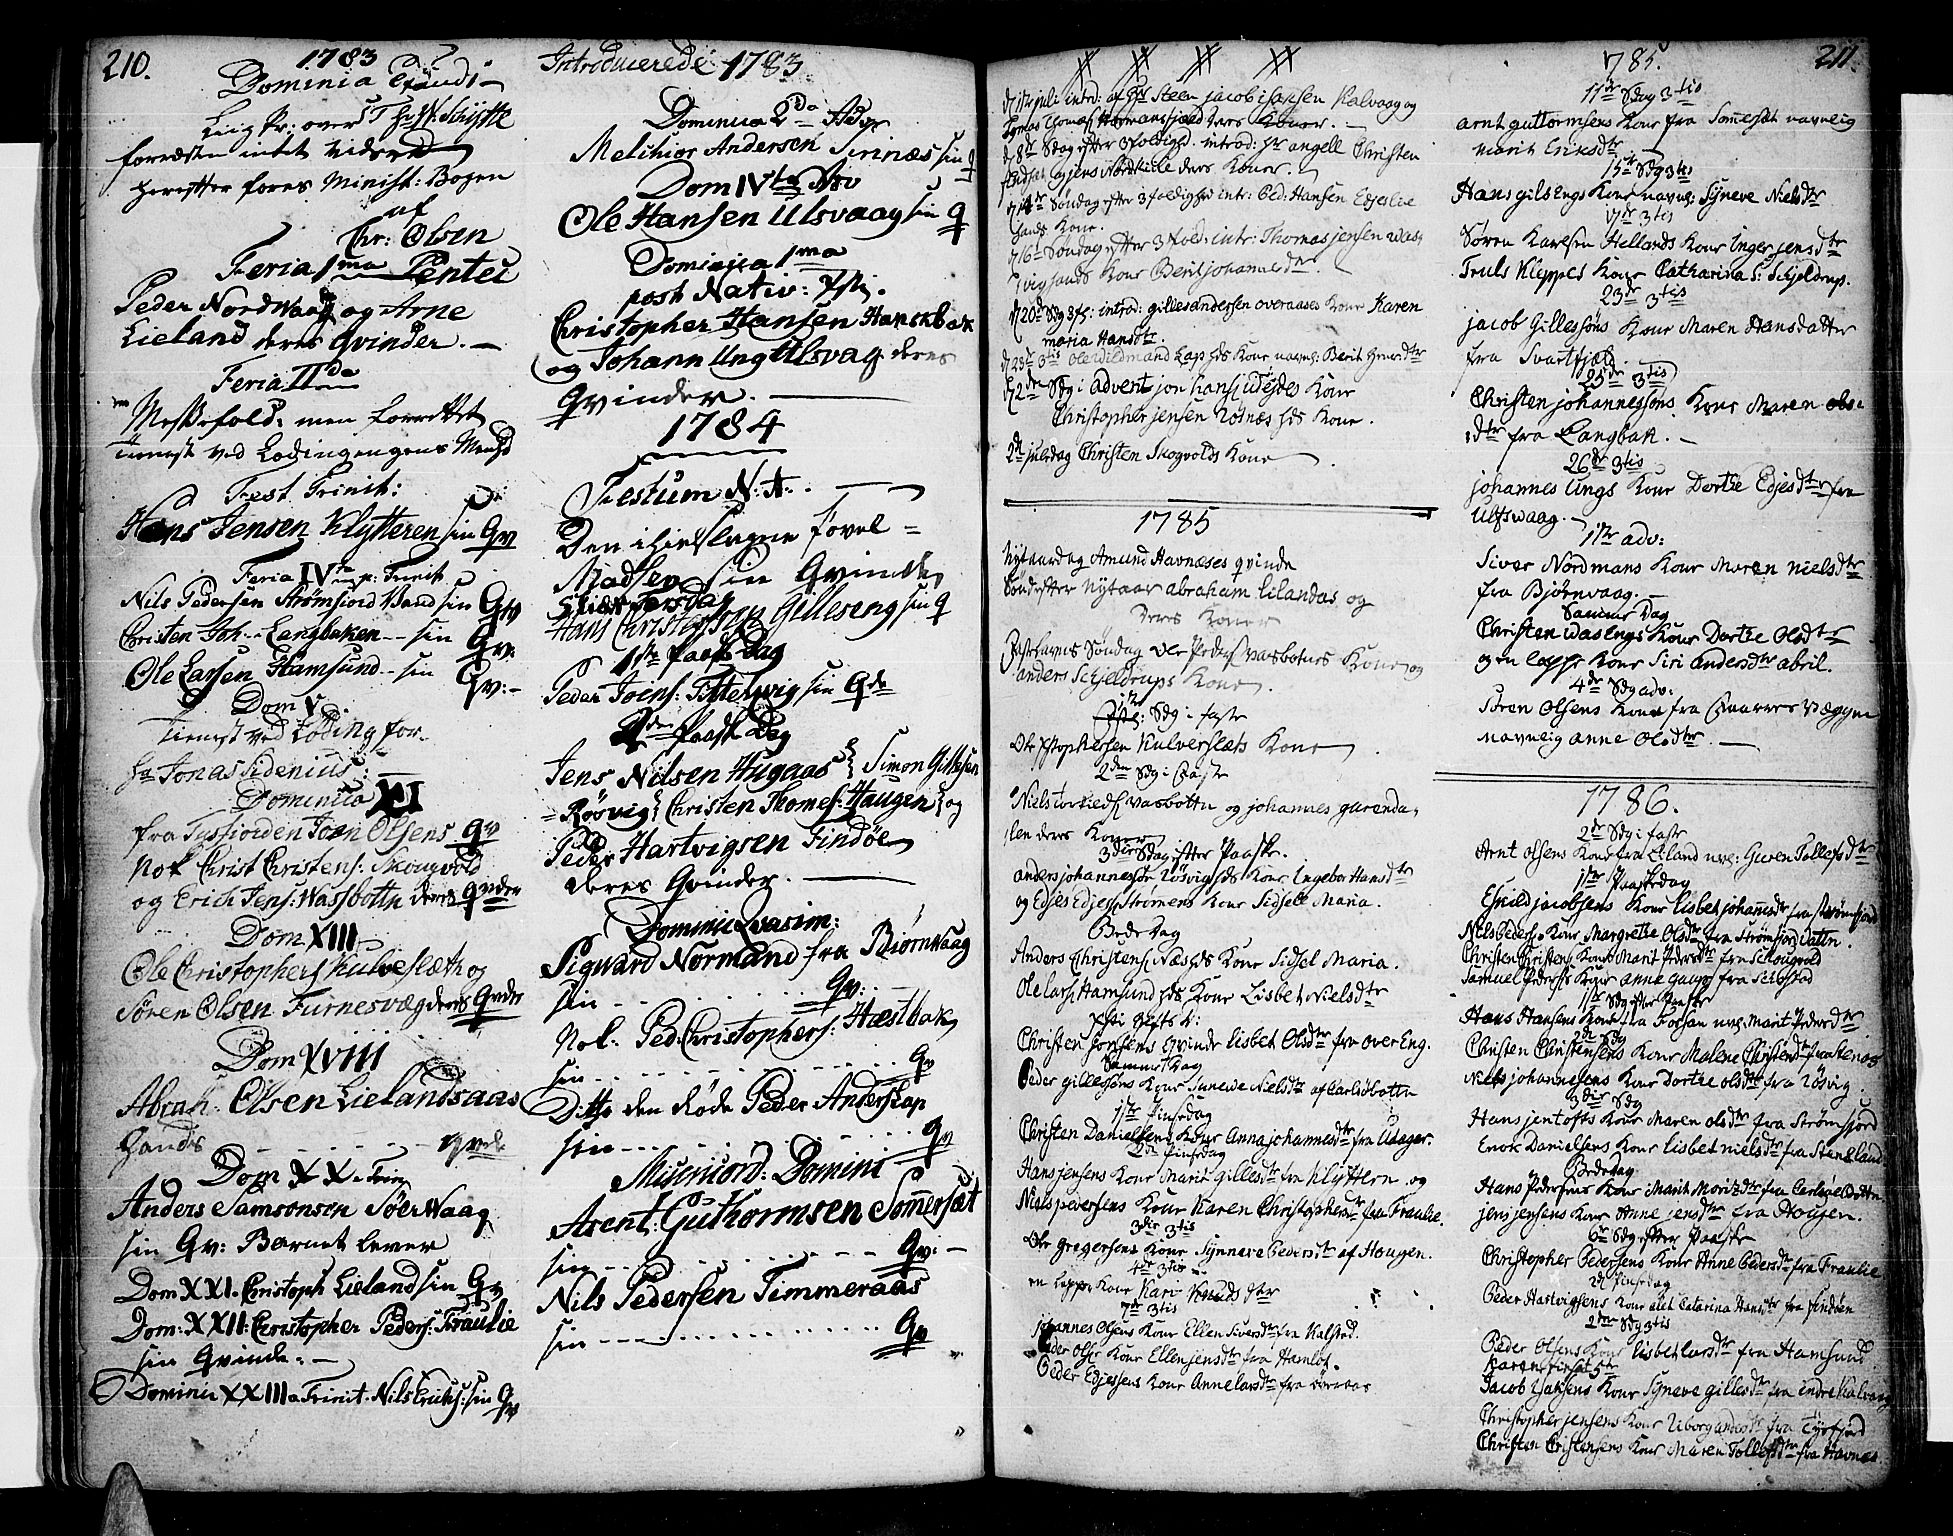 210.
1783
Dominica Exaudi
Liig Pr: over S. Hr: N. Schytte
forresten intet videre
herefter føres Minist: Bogen
af
Chr: Olsen
Feria 1ma Pentec
Peder NordWaag og Arne
Lieland deres Qvinder. —
Feria IIda
Messefald, men forrettet
Tieneste ved Lødingengens Menihd
Fest. Trinit:
Hans Jensen Klytteren sin Qv
Feria IVta p: Trinit
Nils Pedersen Strømfiord Vand sin Qv
Christen Joh-- Langbaken -- sin Qv:
Ole Larsen Hamsund -- sin Qv: -
Dom V.
Tienest ved Løding for
Hr Jonas Sidenius:
Dominica XI
fra Tysfiorden Joen Olsens Qv
Nok Christ Christens: Skougvold
og Erich Jens: Wassbotn deres Qvder
Dom XIII
Ole Christophers Kulveslæth og
Søren Olsen Furnesvæg deres Qvder
Dom XVIII
Abrah. Olsen Lielandsaas
hands - - - - - qvd
Dom XX. Trin
Anders Samsonsen SøerWaag
sin Qv: Barnet lever
Dom XXI. Christoph Lieland sin Qv
Dom: XXII: Christopher Peders: Fraulie
sin Qvinde. —
Dominic XXIIIa Trinit. Nils Erichs: sin Qv
Introducerede 1783
Dominica 2da Adv
Melchior Andersen Tirinæs sin q
Dom IVta Adv
Ole Hansen Ulsvaag sin q
Dominica 1ma
post Nativ: Xsti.
Christopher Hansen Hanskbak
og Johann Ung Ulsvag deres
Qvinder. —
1784
Festum N: A: . —
Den ihielslagne Povel =
Madsen sin Qvinde
Skiær Torsdag
Hans Christensen Gilleseng sin q
1ste Paaske Dag
Peder Joens: Fitterwig sin Qde
2den Paaske Dag
Jens Nilsen Hugaas Simon Gillesen
= Røvvig Christen Thomes: Haugen og
Peder Hartvigsen Findøe
deres Qvinder. —
Dominic Qvasim:
Sigward Normand fra BiørnWaag
sin - - - - - Qv: -
Nol. Ped: Christophers: Hæstbak
sin - - - - - Qv
Ditto den Røde Peder Anders Lap
sin - - - - - Qv
Misericord: Domini
Arent: Guthormsen Sommersæt
sin - - - - - Qv: -
Nils Pedersen Timmeraas
sin - - - - - Qv
d. 11te juli intrd: af Hr Steen jacob isaksen Kalvaag og
Tomas Thomas: Hermansfjeld deres Koner. —
d 8de Sdag efter 3foldighd. introd: Hr angell Christen
deres Koner.
d 14te Søndag efter 3foldighed intr: Ped: Hansen Edjeslie
hands Kone.
d 16de Søndag efter 3fold: intr: Thomas jensen was,
hands Kone Berit johannesdtr.
d 20de Sdg 3f: introd: gilles andersen overaases Kone Karen
maria Hansdtr.
d 23de 3tis ole vildmand Lap hds Kone navnl: Berit
d 2den Sdg i advent jon hans: utejdes Kone
Christopher jensen Rosnæs hds Kone.
2de juledag Christen Skogvolds Kone.
1785
Nytaarsdag Amund Havnæses qvinde
Sønd: efter nytaar abraham Lilandas og
deres Koner
Fastelavns Søndag ole Peders: vasbotnes Kone og
anders Schjeldrups Kone.
1te Sdg i faste
Ole Xstophersen Kulverslets Kone.
2den Sdg i Faste
Niels torkieds: vasbottn og johannes gurenda,
len deres Koner
3die Sdag efter Paaske.
anders johannessøn Røsvig hds Kone Ingebor Hansdtr
og Edjes Edjess: Strømens Kone Sidsell Maria.
Bede Dag
Anders Christens: Næs hds Kone Sidsel Maria.
Ole lars: Hamsund hds Kone Lisbet Nielsdtr
Xsti Hfts d:
Christen jonsens Qvinde lisbet Olsdtr fra over Eng.
Samme Dag
Peder gillesøns Kone Sunneve Nielsdtr af Carlsøbottn
1ste Pinsedag
Christen Danielsens Kone Anna johannesdtr fra Udager.
2den Pinsedag
Hans jensens Kone Marit gillesdtr fra Klyttern og
Niels pedersens Kone Karen Christophersdtr fra Fraulie.
3die 3tis
Ole gregersens Kone Synneve Pedersdtr af Hougen.
4de 3tis
en Lappe Kone Kari Knudsdtr
7de 3tis
johannes Olsens Kone Ellen Siversdtr fra Kalsted.
Peder Olss: Kone Ellen jensdtr fra Hamlot.
Peder Edjessens Kone Anne larsdtr fra
211.
1785.
11te Sdg 3tis
arnt guttormsens Kone fra Somerset navnlig
marit Eriksdtr
15de Sdg 3tis
Hans gilsengs Kone navnl: Syneve Nielsdtr
17de 3tis
Søren Karlsen Hellands Kone Inger jensdtr
Truls Kleppes Kone Catharina S: Schjeldrup.
23de 3tis
jacob Gillessøns Kone Maren Hansdatter
fra Svartfjæld.
25de 3tis
Christen johannessøns Kone Maren ols
dtr fra Langbak. —
26de 3tis
johannes Ungs Kone Dortze Edjesdtr fra
Ulfswaag. —
1te adv:
Siver Nordmans Kone Maren nielsdtr
fra Bjørnvaag. —
Samme Dag
Christen wasengs Kone Dortze Olsdtr
og en lappe Kone Siri andersdtr abril.
4de Sdg adv:
Søren Olsens Kone fra Vægge
navnlig anne Olsdtr. —
1786.
2de Sdg i faste
Arnt olsens Kone fra Liland nvl: Guren Tollefsdtr
1ste Paaskedag
Eskild jacobsens Kone lisbet johannesdtr fra strømfjord
Niels Peders: Kone Margretze Olsdtr fra Strømfjord Vattn.
Christen Christens: Kone Marit Pedersdtr fra Schougvold
Samuel Peders: Kone anne gaups fra Sebostad
1ste Sdg efter Paaske
Hans Hansens Kone fra Forsan nvl: Marit Pedersdtr
2de Sdg
Christen Christensens Kone Malene Christensdtr fra Renos
Niels johannesens Kone Dortze olsdtr fra Røsvig
3die Sdg
Hans jentofts Kone Maren olsdtr fra Strømfjord
Enok Danielsens Kone lisbet nielsdtr fra Stensland
Bededag
Hans Pedersens Kone Marit Moritzdtr fra Carlsøebottn
jens jensens Kone Anne jensdtr fra Hougen.
6te Sdg efter Paaske
Christopher Pedersens Kone Anne Pedersdtr fra Fraulie
2de Pinsedag
Peder Hartvigsens Kone alet Catarina Hansdtr fra Findøen
2den Sdg 3tis
Peder Olsens Kone lisbet larsdtr fra Hamsund
Jacob Isaksens Kone Syneve gillesdtr fra indre Kalvaag
Christopher jensens Kone Ciborg andersdtr fra Tysfjord
Christen Cristensens Kone Maren Tollefsdtr fra Havnæs